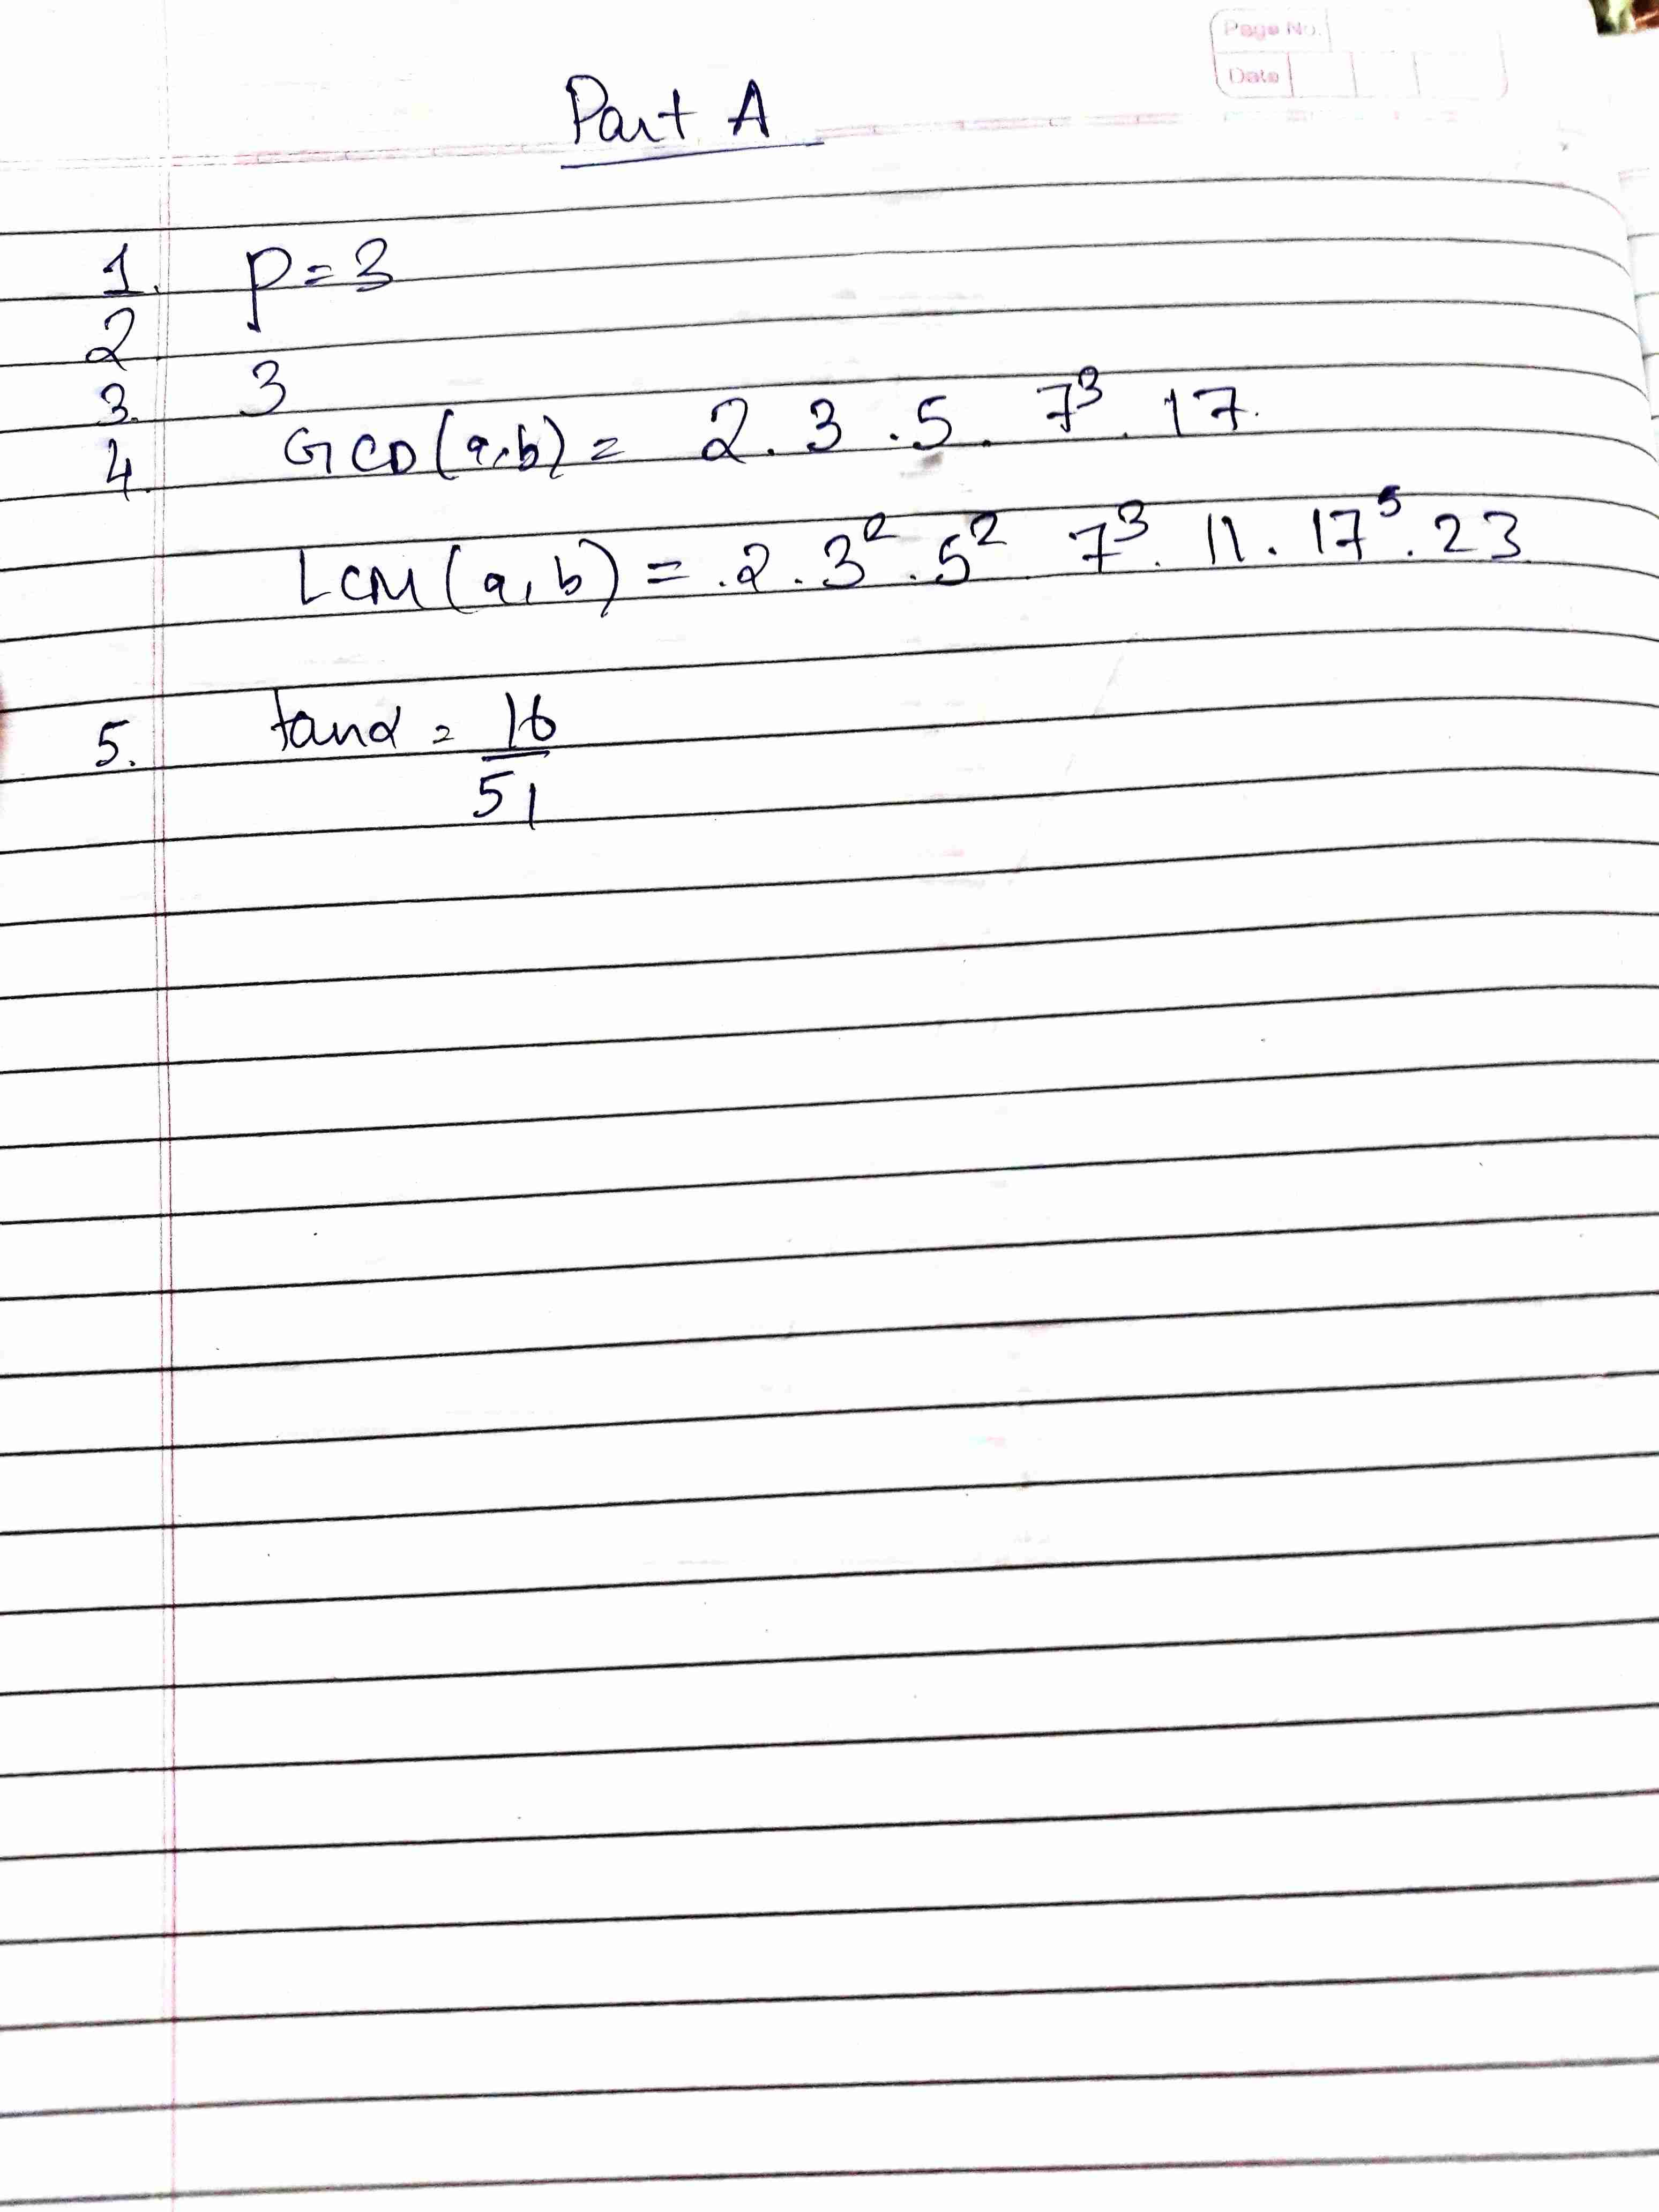 Page No.
Date
Part A
1. p = 3
2
3. 3
4. GCD(a,b) = 2 . 3 . 5 . 7³ . 17.
LCM(a,b) = .2 . 3² . 5² 7³ . 11 . 17⁵ . 23
5. tanα = 16
51